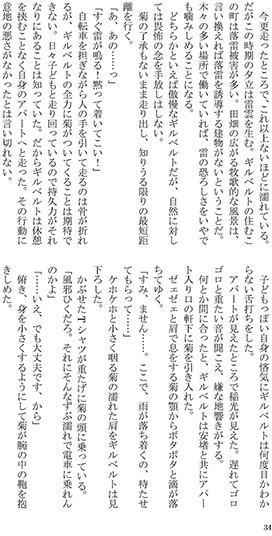 今更走ったところで、これ以上ないほどに濡れている。
だがこの時期の夕立は雷雲を生む。ギルベルトの住むこ
の町は落雷被害が多い。田畑の広がる牧歌的な風景は、
言い換えれば落雷を誘導する建物がないということだ。
木々の多い場所で働いていれば、雷の恐ろしさをいやで
も噛みしめることになる。
どちらかといえば傲慢なギルベルトだが、自然に対し
ては畏怖の念を手放しはしない。
菊の了承もないまま走り出し、知りうる限りの最短距
離を行く。
「あ、あの……っ」
「すぐ雷が鳴る！黙って着いてこい！」
自転車を担ぎながら人の手を引いて走るのは骨が折れ
るが、ギルベルトの全力に菊がついてくることは期待で
きない。日々子どもと走り回っているので持久力がそれ
なりにあることは知っていた。だからギルベルトは休憩
を挟むことなく自身のアパートへと走った。その行動に
意地の悪さがなかったとは言い切れない。
子どもっぽい自身の悋気にギルベルトは何度目かわか
らない舌打ちをした。
アパートが見えたところで稲光が見えた。遅れてゴロ
ゴロと重たい音が聞こえ、嫌な地響きがする。
何とか間に合ったと、ギルベルトは安堵と共にアパー
ト入り口の軒下に菊を引き入れた。
ゼェゼェと肩で息をする菊の顎からボタボタと滴が落
ちてゆく。
「すみ、ません……。ここで、雨が落ち着くの、待たせ
てもらって……」
ケホケホと小さく咽る菊の濡れた肩をギルベルトは見
下ろした。
かぶせたTシャツが重たげに菊の頭に乗っている。
「風邪ひくだろ。それにそんなずぶ濡れで電車に乗れん
のかよ」
「……いえ、でも大丈夫です、から」
俯き、身を小さくするようにして菊が腕の中の鞄を抱
きしめた。
34